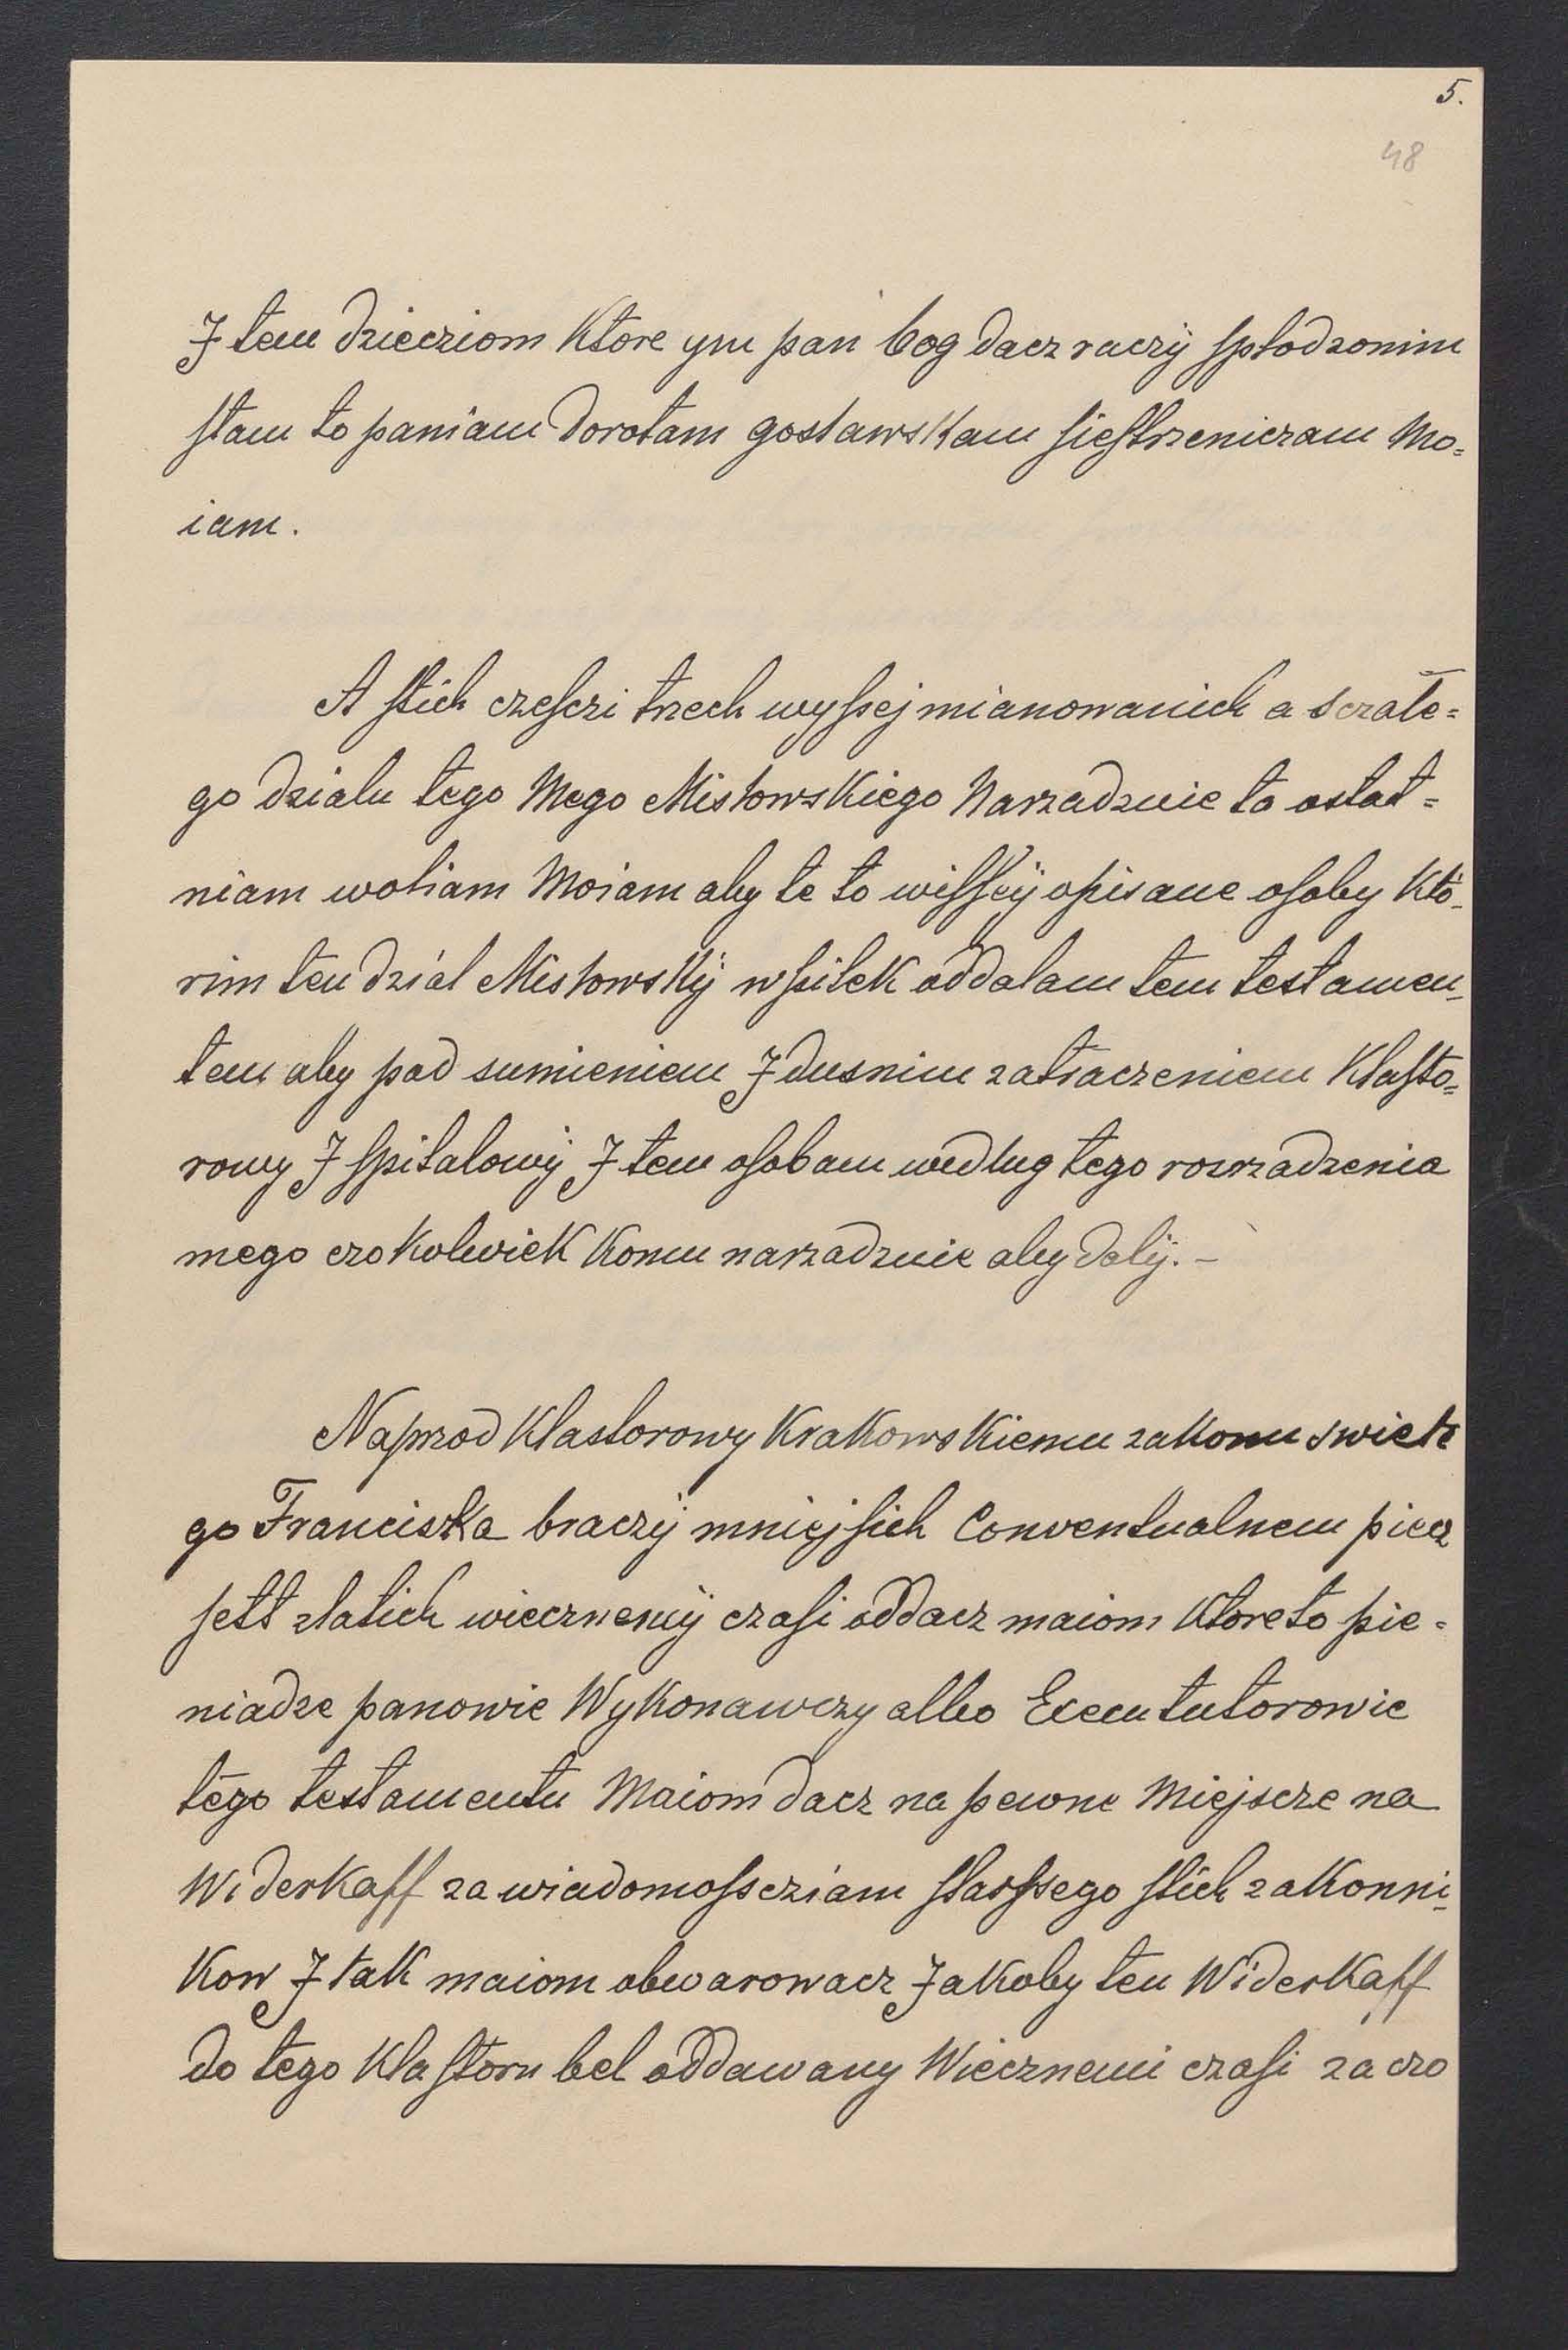 5.
48
J tem dziecziom Ktore ym pan bog dacz raczÿ spłodzonim
stam to paniam Dorotam gosławsKam siestrzeniczam Mo=
iam.
A stich czesczi trzech wyssej mianowanich a s czałe=
go działu tego Mego MisłowsKiego Narzadzuie ta ostat=
niam woliam Moiam aby te to wissejÿ opisane osoby Kto-
rim ten dział MisłowsKÿ wsitek oddalam tem testamen-
tem aby pod sumieniem J dusnim zatraczeniem Klasto=
rowy J spitalowÿ J tem osobam wedlug tego rozrzadzenia
mego czoKolwieK Komu narzadzuie aby dalÿ. -
Naprzod Klastorowy KraKowsKiemu zaKonu swiete
go FranciszKa braczÿ mniejsich Conventualnem piecz
sett zlatich wiecznemÿ czasi oddacz maiom Ktore to pie=
niadze panowie WyKonawczy albo Execututorowie
tego testamentu Maiom dacz na pewne Miejscze na
WiderKaff za wiadomoscziam starssego stich zaKonni-
Kow J taK maiom obwarowacz JaKoby ten WiderKaff
do tego Klastoru bel oddawany Wiecznemi czasi za czo